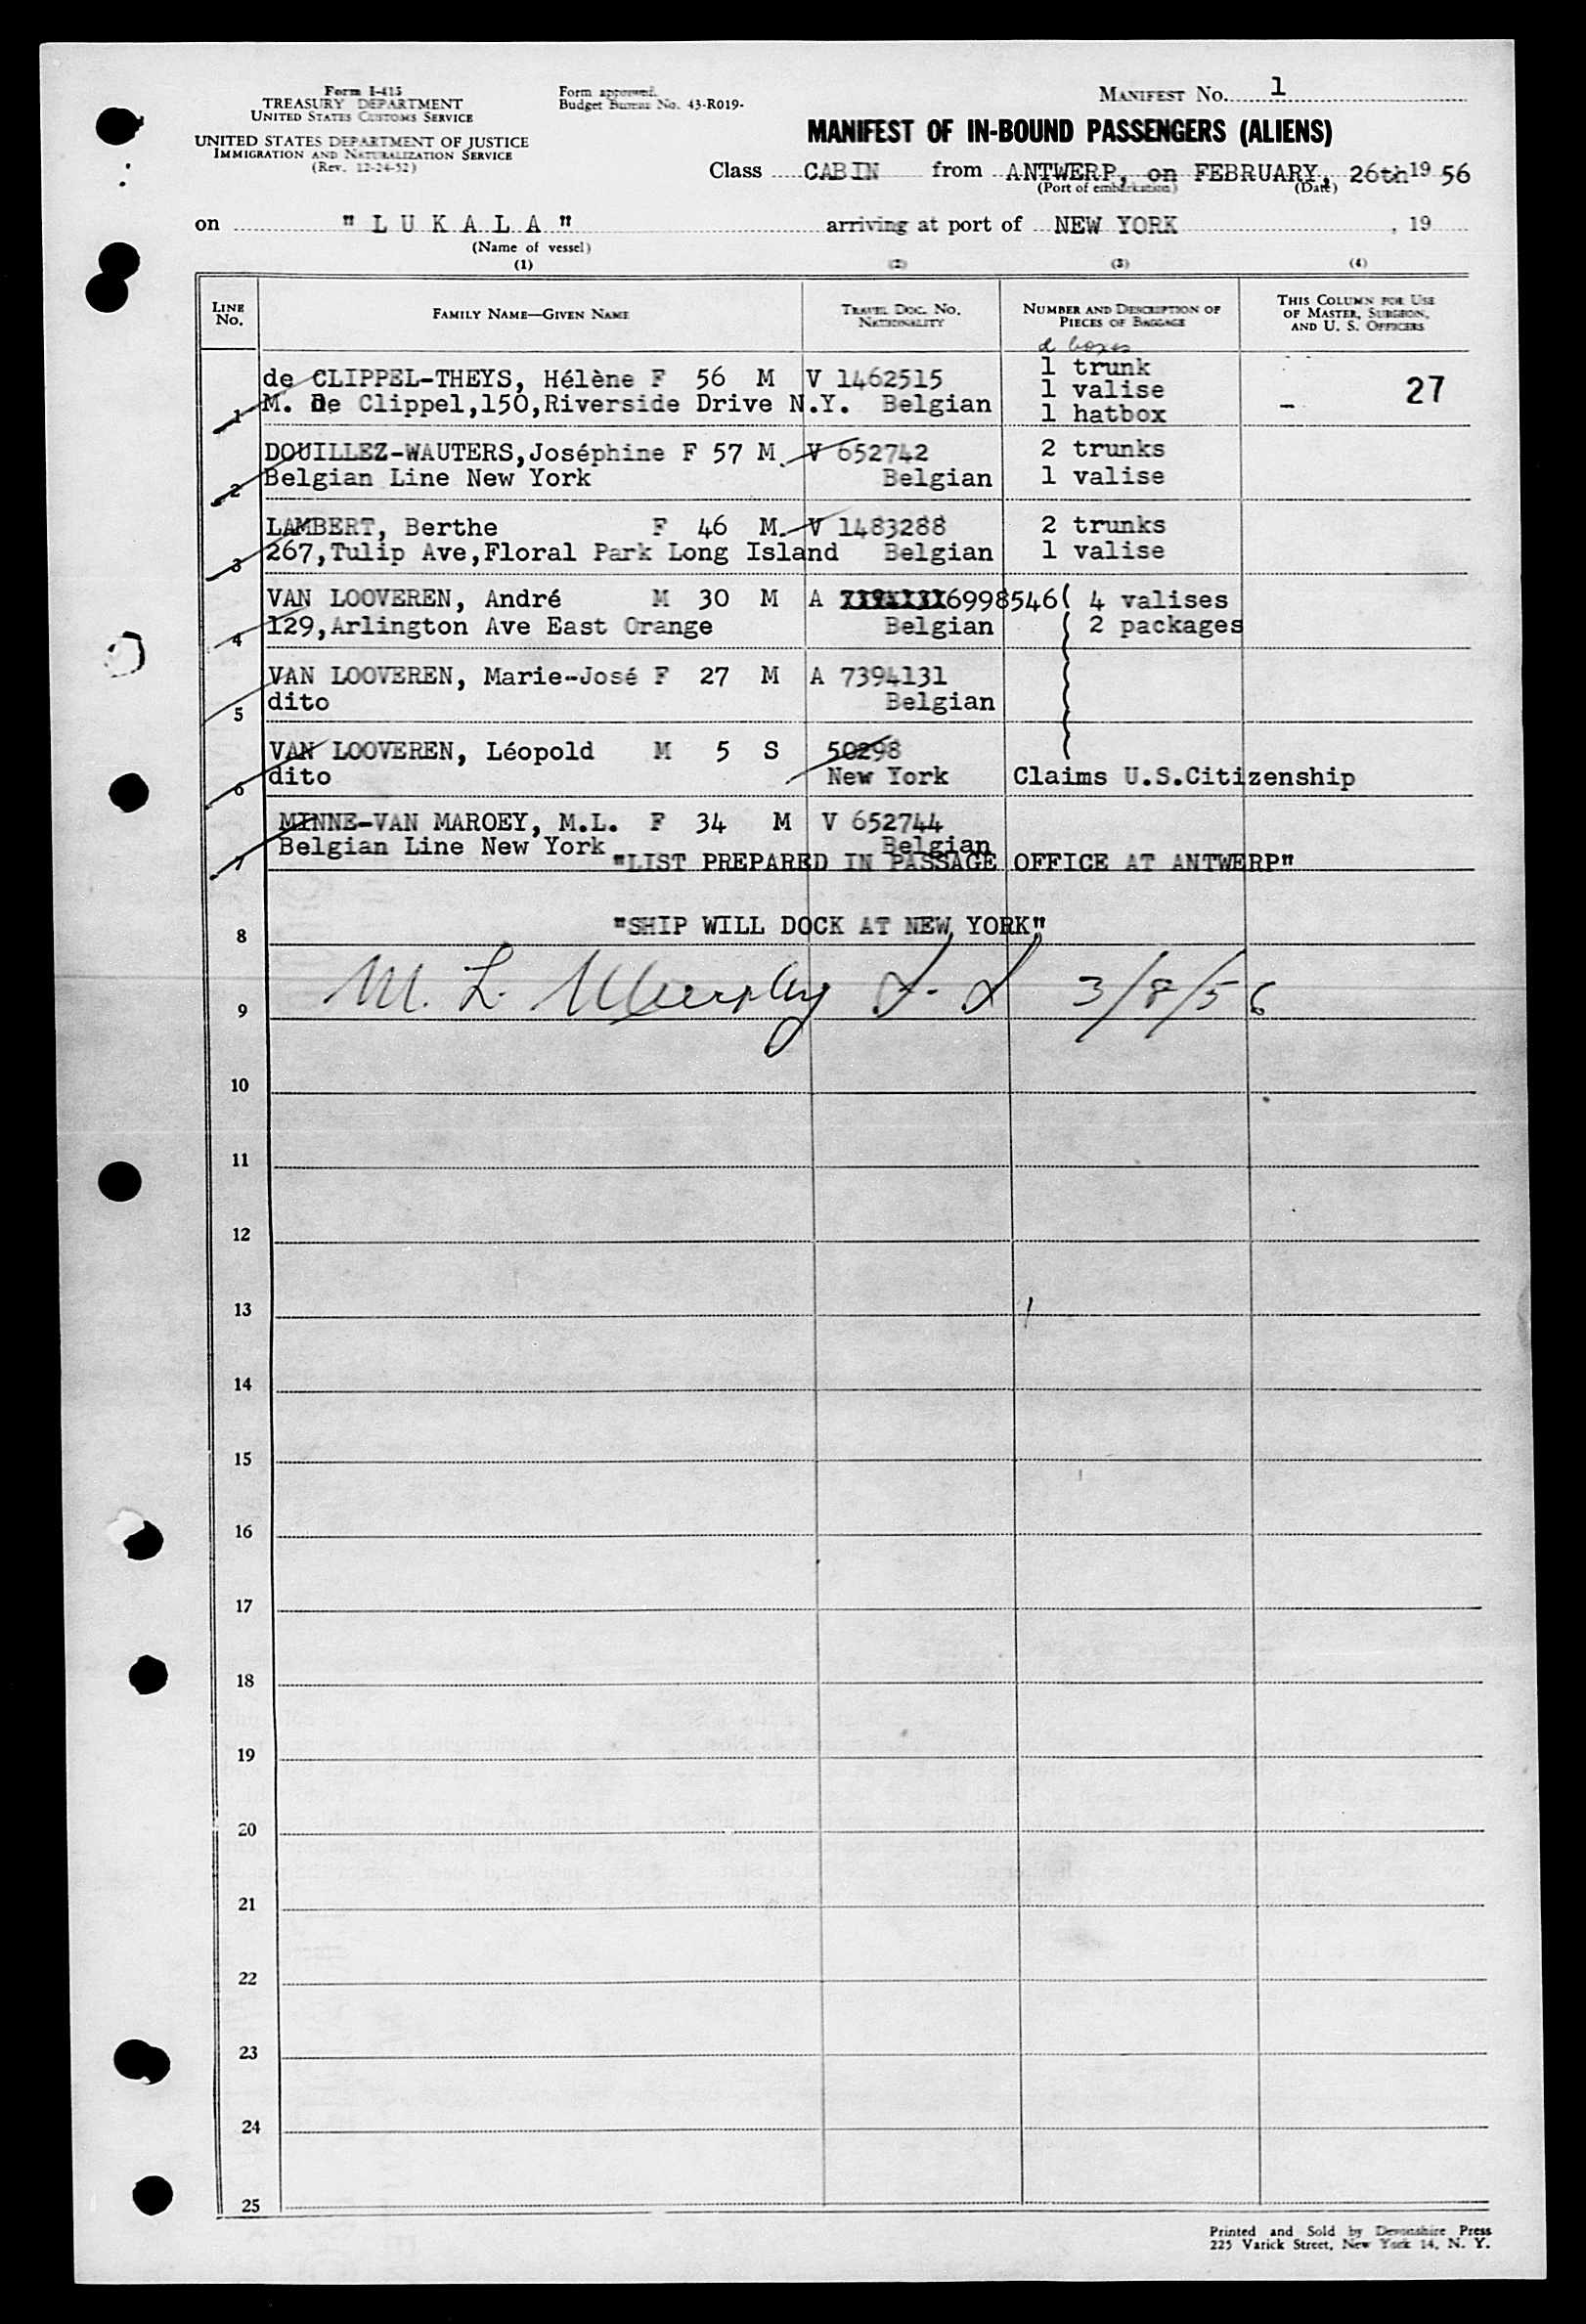 Form I-415
TREASURY DEPARTMENT
UNITED STATES CUSTOMS SERVICE
UNITED STATES DEPARTMENT OF JUSTICE
IMMIGRATION AND NATURALIZATION SERVICE
(Rev. 12-24-52)
Form approved.
Budget Bureau No. 43-R019-
MANIFEST No. 1
MANIFEST OF IN-BOUND PASSENGERS (ALIENS)
Class CABIN from ANTWERP, on FEBRUARY, 26th 19 56
(Port of embarkation) (Date)
on "L U K A L A" arriving at port of NEW YORK , 19
(Name of vessel)
(1) (2) (3) (4)
LINE No. FAMILY NAME—GIVEN NAME TRAVEL DOC. No. NATIONALITY NUMBER AND DESCRIPTION OF PIECES OF BAGGAGE THIS COLUMN FOR USE OF MASTER, SURGEON, AND U. S. OFFICERS
2 boxes
1 trunk
de CLIPPEL-THEYS, Hélène F 56 M V 1462515 1 valise 27
1 M. De Clippel,150,Riverside Drive N.Y. Belgian 1 hatbox
DOUILLEZ-WAUTERS,Joséphine F 57 M. V 652742 2 trunks
2 Belgian Line New York Belgian 1 valise
LAMBERT, Berthe F 46 M. V 1483288 2 trunks
3 267,Tulip Ave,Floral Park Long Island Belgian 1 valise
VAN LOOVEREN, André M 30 M A 6998546 ( 4 valises
4 129,Arlington Ave East Orange Belgian ( 2 packages
VAN LOOVEREN, Marie-José F 27 M A 7394131
5 dito Belgian
VAN LOOVEREN, Léopold M 5 S 50298
6 dito New York Claims U.S.Citizenship
MINNE-VAN MAROEY, M.L. F 34 M V 652744
7 Belgian Line New York Belgian
"LIST PREPARED IN PASSAGE OFFICE AT ANTWERP"
8 "SHIP WILL DOCK AT NEW YORK"
9 M. L. Murphy 3/8/56
10
11
12
13
14
15
16
17
18
19
20
21
22
23
24
25
Printed and Sold by Devonshire Press
225 Varick Street, New York 14, N. Y.